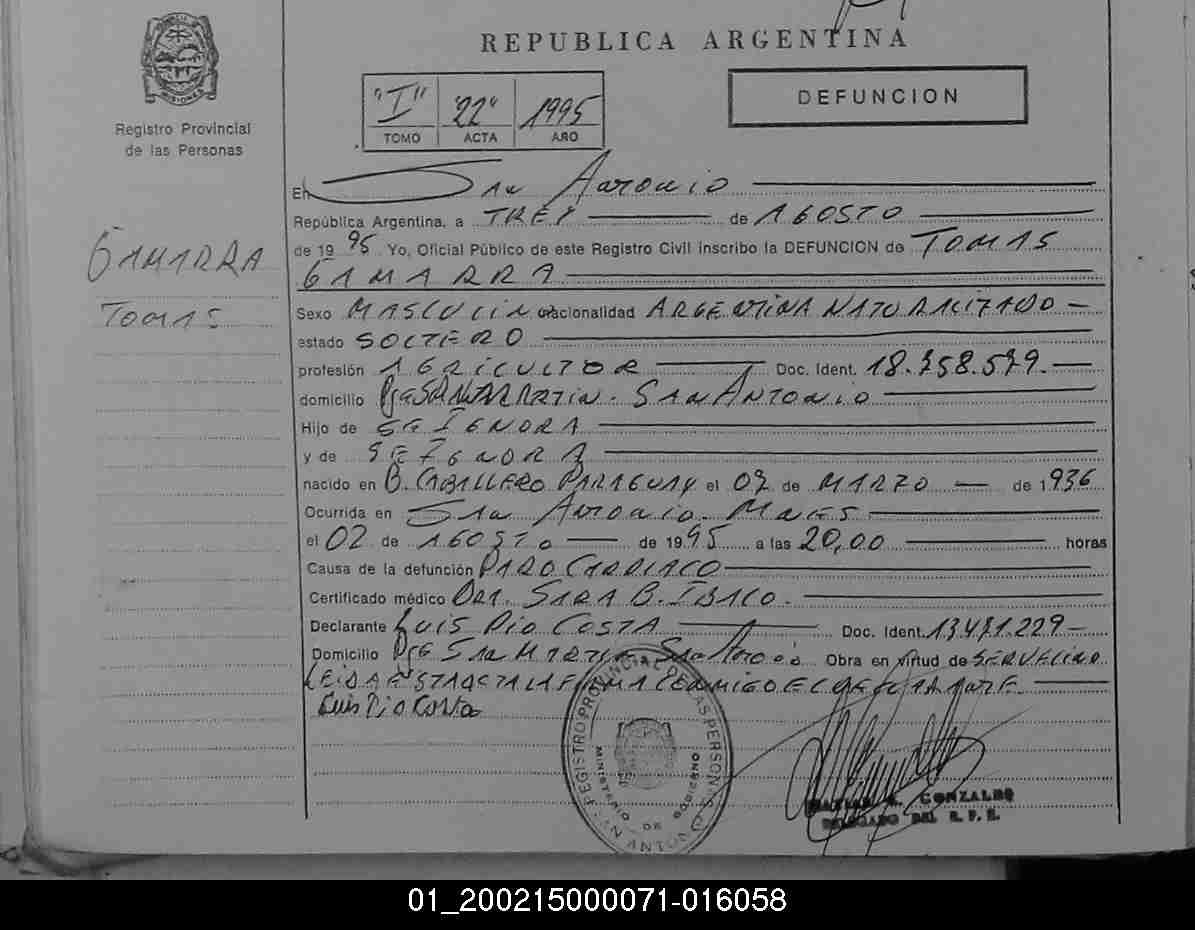 REPUBLICA ARGENTINA
MISIONES
Registro Provincial
de las Personas
"I" "22" 1995
TOMO ACTA AÑO
DEFUNCION
En San Antonio
República Argentina, a TRES de AGOSTO
de 1995 Yo, Oficial Público de este Registro Civil inscribo la DEFUNCION de TOMAS
GAMARRA
GAMARRA
TOMAS
Sexo MASCULINO nacionalidad ARGENTINA NATURALIZADO
estado SOLTERO
profesión AGRICULTOR Doc. Ident. 18.758.579.
domicilio Pje SAN MARTIN. SAN ANTONIO
Hijo de SE IGNORA
y de SE IGNORA
nacido en B. CABALLERO PARAGUAY el 07 de MARZO de 1936
Ocurrida en San Antonio. Mnes
el 02 de AGOSTO de 1995 a las 20,00 horas
Causa de la defunción PARO CARDIACO
Certificado médico Dra. SARA B.
Declarante LUIS PIO COSTA Doc. Ident. 13.471.229
Domicilio Pje San Martin San Antonio Obra en virtud de SER VECINO
LEIDA ESTA ACTA LA FIRMA CONMIGO EL DECLARANTE
Luis Pio Costa
REGISTRO PROVINCIAL DE LAS PERSONAS
MINISTERIO DE GOBIERNO
SAN ANTONIO
GONZALES
DELEGADO DEL R. P. P.
01_200215000071-016058